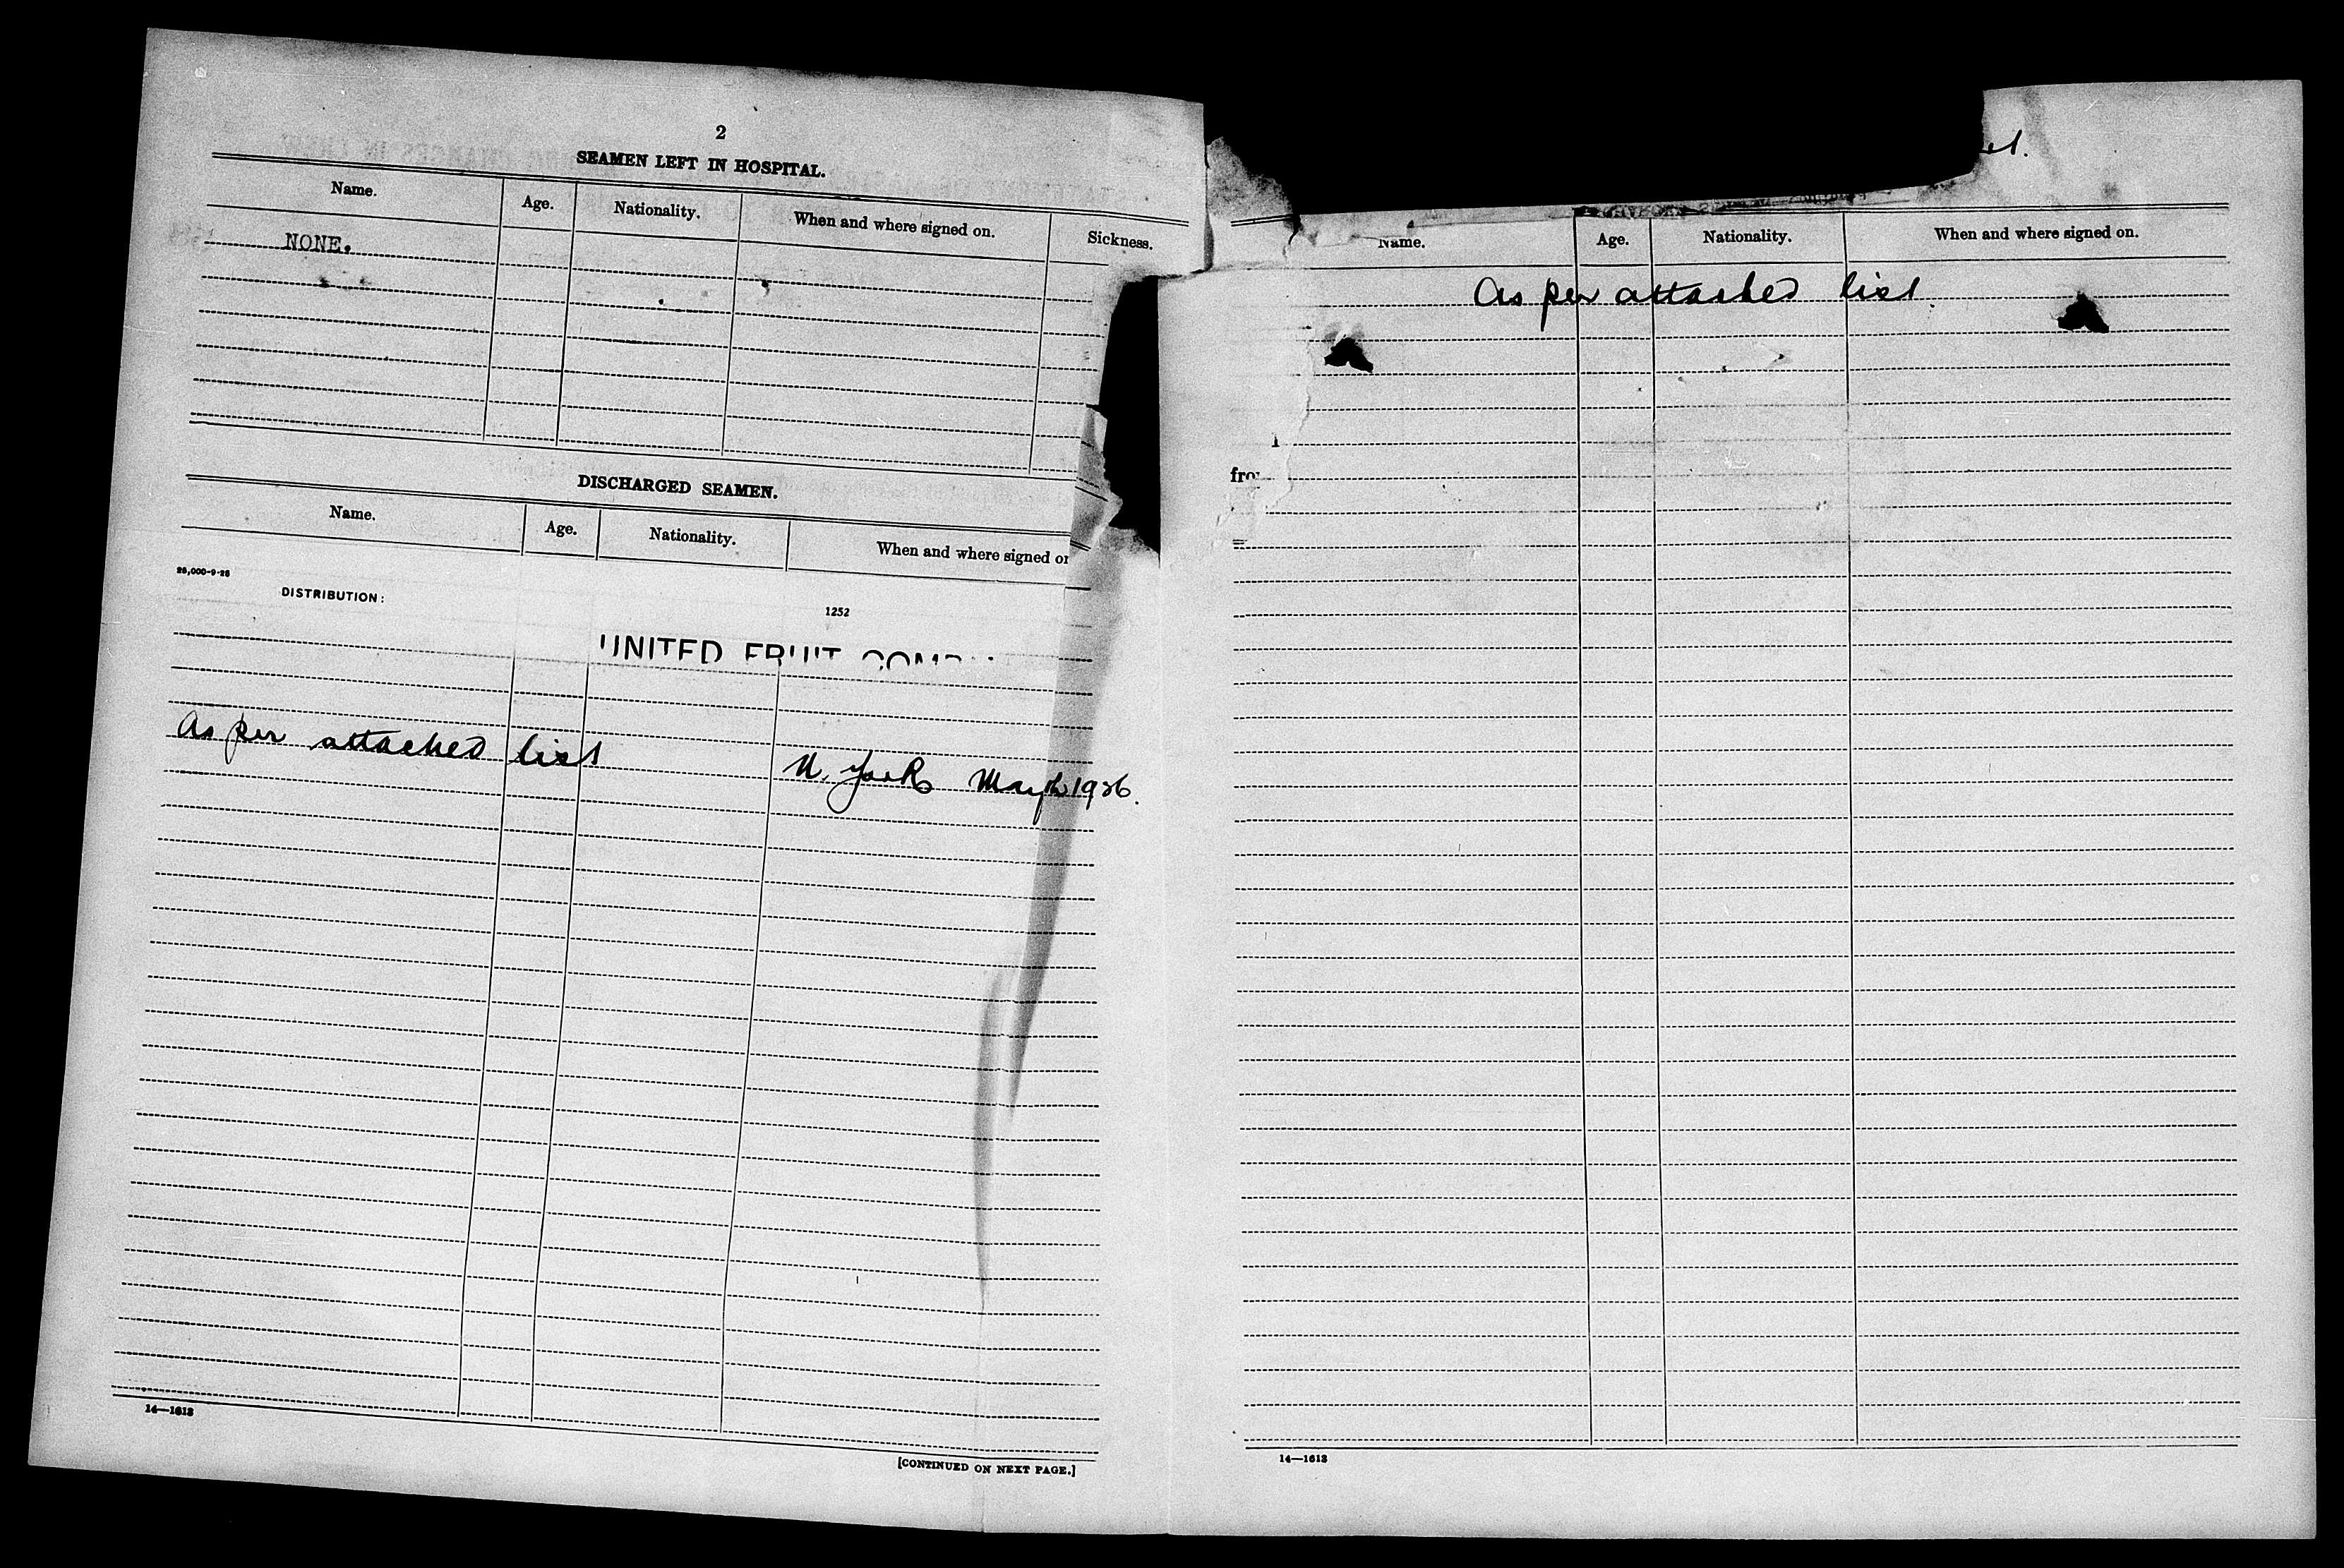 2
SEAMEN LEFT IN HOSPITAL.
Name. Age. Nationality. When and where signed on. Sickness.
NONE.
DISCHARGED SEAMEN.
Name. Age. Nationality. When and where signed or
25,000-9-25
DISTRIBUTION: 1252
UNITED FRUIT COMP
As per attached list N. York May 1926.
14—1613
[CONTINUED ON NEXT PAGE.]
Name. Age. Nationality. When and where signed on.
As per attached list.
fro
14—1613